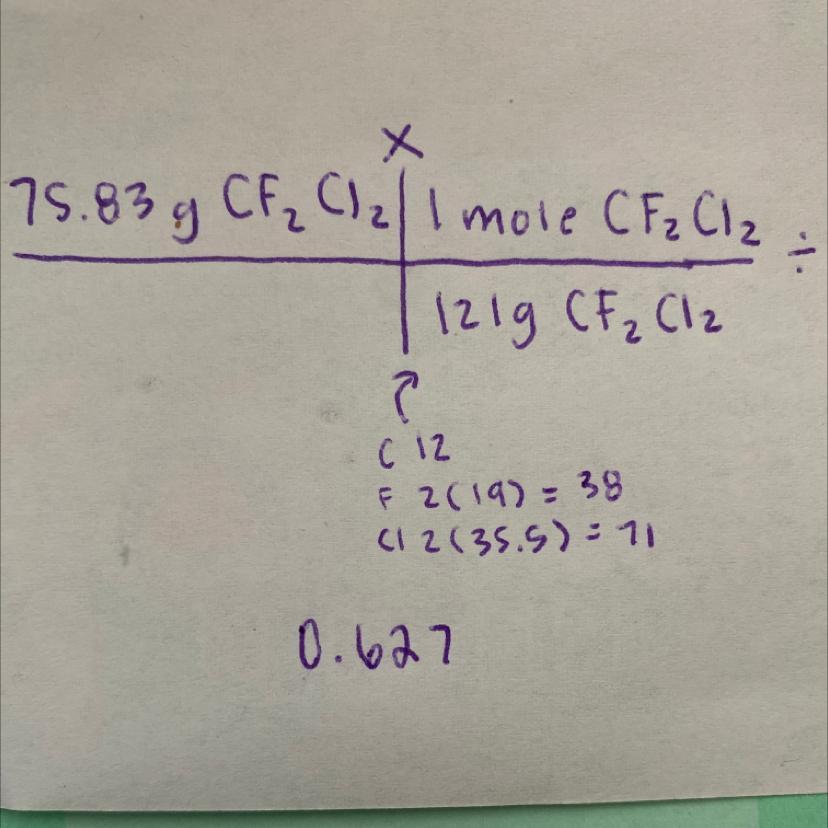 ×
75.83 g CF₂Cl₂ | 1 mole CF₂Cl₂ ÷
121g CF₂Cl₂
C 12
F 2(19) = 38
Cl 2(35.5) = 71
0.627